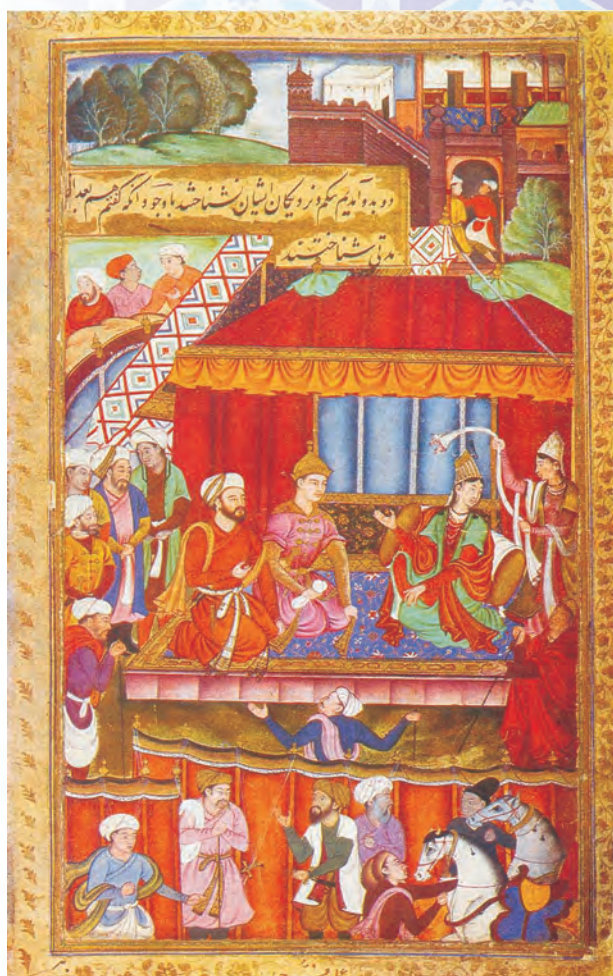 دو بدو آمدیم بیکم و نزدیکان ایشان نشناختند با وجود آنکه گفتم هم بعد از
مدتی شناختند